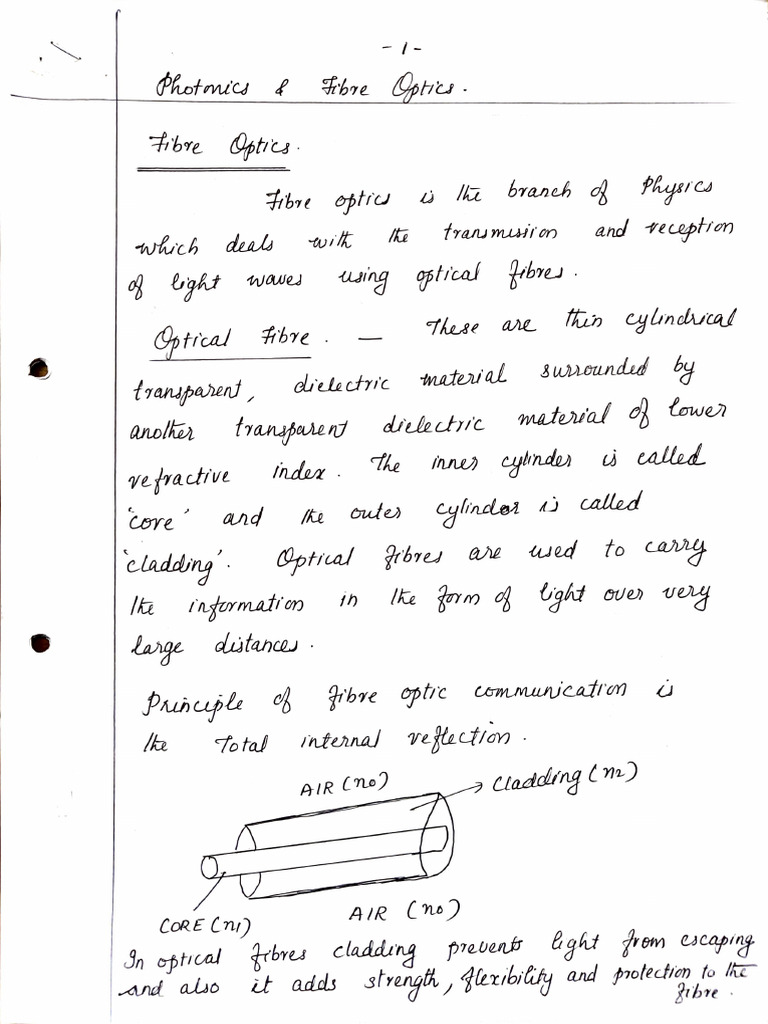 - 1 -
Photonics & Fibre Optics.
Fibre Optics.
Fibre optics is the branch of Physics
which deals with the transmission and reception
of light waves using optical fibres.
Optical Fibre. — These are thin cylindrical
transparent, dielectric material surrounded by
another transparent dielectric material of lower
refractive index. The inner cylinder is called
'core' and the outer cylinder is called
'cladding'. Optical fibres are used to carry
the information in the form of light over very
large distances.
Principle of fibre optic communication is
the Total internal reflection.
AIR (n0)
Cladding (n2)
CORE (n1)
AIR (n0)
In optical fibres cladding prevents light from escaping
and also it adds strength, flexibility and protection to the
fibre.